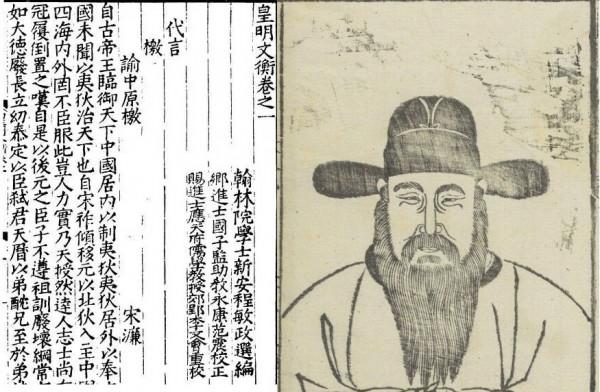 皇明文衡卷之一
翰林院學士新安程敏政選編
鄉進士國子監助教永康范震校正
賜進士應天府儒學教授郊郢李文會重校
代言
檄
諭中原檄 宋濂
自古帝王臨御天下中國居內以制夷狄夷狄居外以奉中
國未聞以夷狄治天下也自宋祚傾移元以北狄入主中國
四海內外罔不臣服此豈人力實乃天授然達人志士尚有
冠履倒置之嘆自是以後元之臣子不遵祖訓廢壞綱常
如大德廢長立幼泰定以臣弒君天曆以弟酖兄至於弟